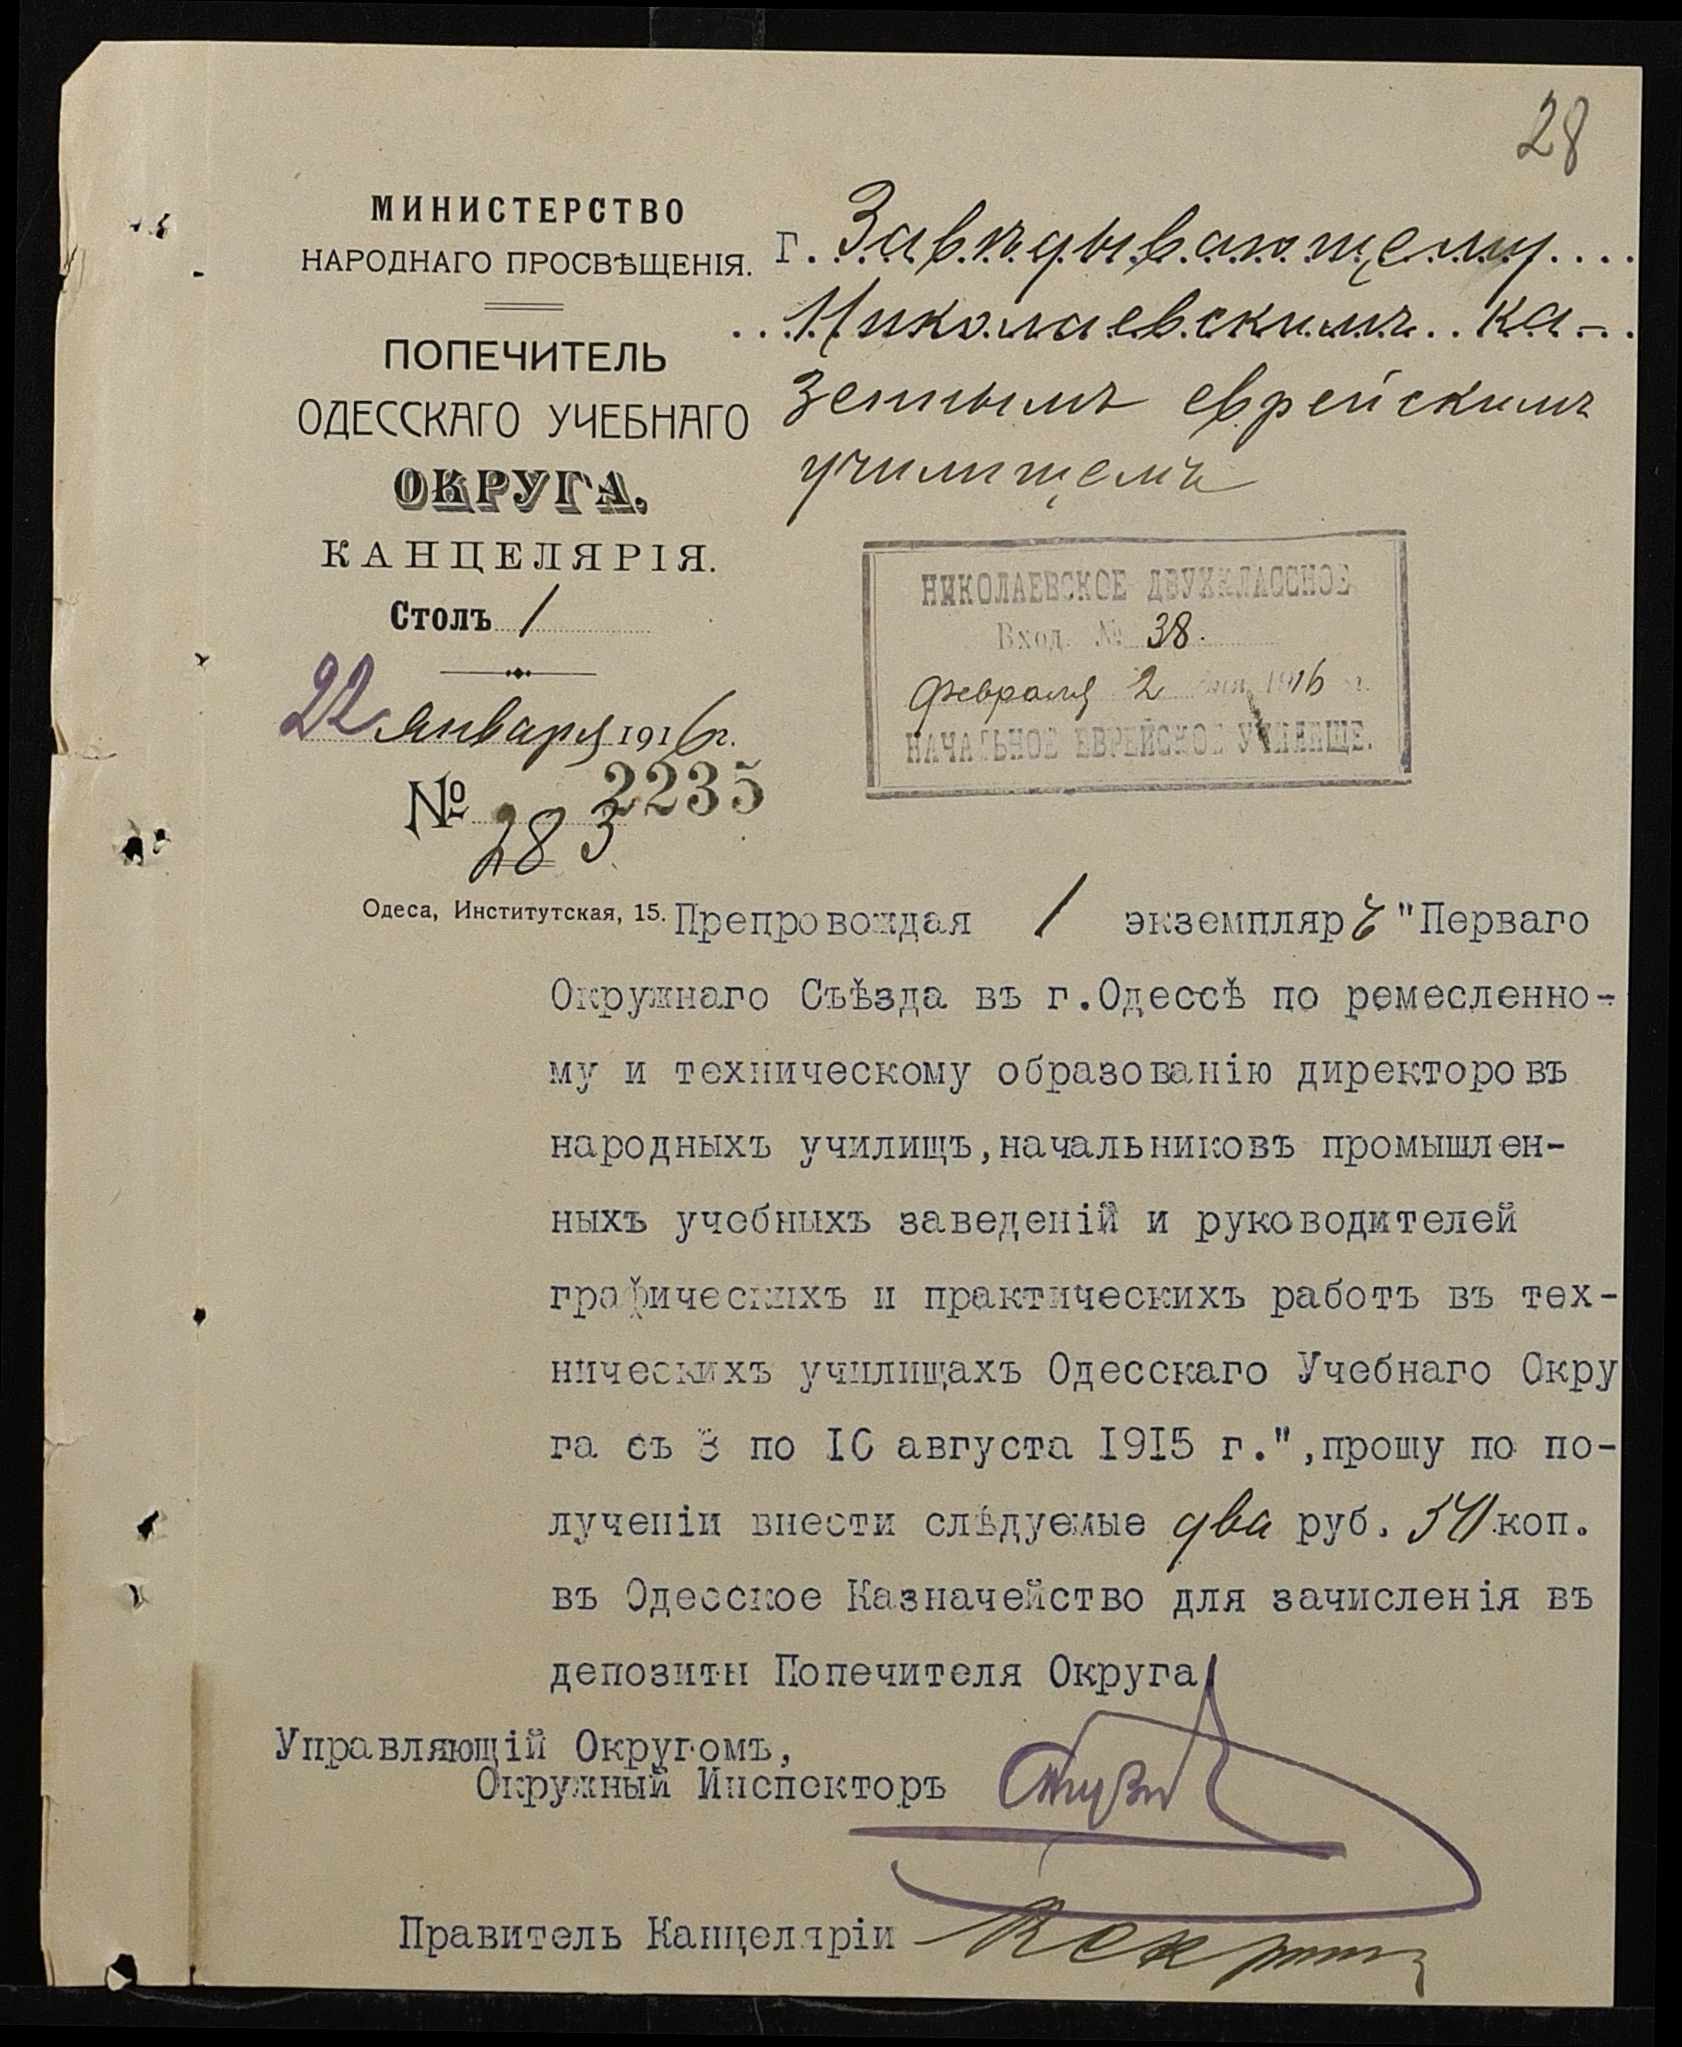 28
МИНИСТЕРСТВО
НАРОДНАГО ПРОСВѢЩЕНІЯ.
ПОПЕЧИТЕЛЬ
ОДЕССКАГО УЧЕБНАГО
ОКРУГА.
КАНЦЕЛЯРІЯ.
Столъ 1
22 января 1916 г.
№ 2235
283
Одеса, Институтская, 15.
Г. Завѣдывающему
Николаевскимъ ка-
зеннымъ еврейскимъ
училищемъ
НИКОЛАЕВСКОЕ ДВУХКЛАССНОЕ
Вход. № 38.
февраля 2 дня 1916 г.
НАЧАЛЬНОЕ ЕВРЕЙСКОЕ УЧИЛИЩЕ.
Препровождая 1 экземпляръ "Перваго
Окружнаго Съѣзда въ г.Одессѣ по ремесленно-
му и техническому образованію директоровъ
народныхъ училищъ,начальниковъ промышлен-
ныхъ учебныхъ заведеній и руководителей
графическихъ и практическихъ работъ въ тех-
ническихъ училищахъ Одесскаго Учебнаго Окру
га съ 3 по 10 августа 1915 г.",прошу по по-
лученіи внести слѣдуемые два руб. 50 коп.
въ Одесское Казначейство для зачисленія въ
депозиты Попечителя Округа
Управляющій Округомъ,
Окружный Инспекторъ
Правитель Канцеляріи